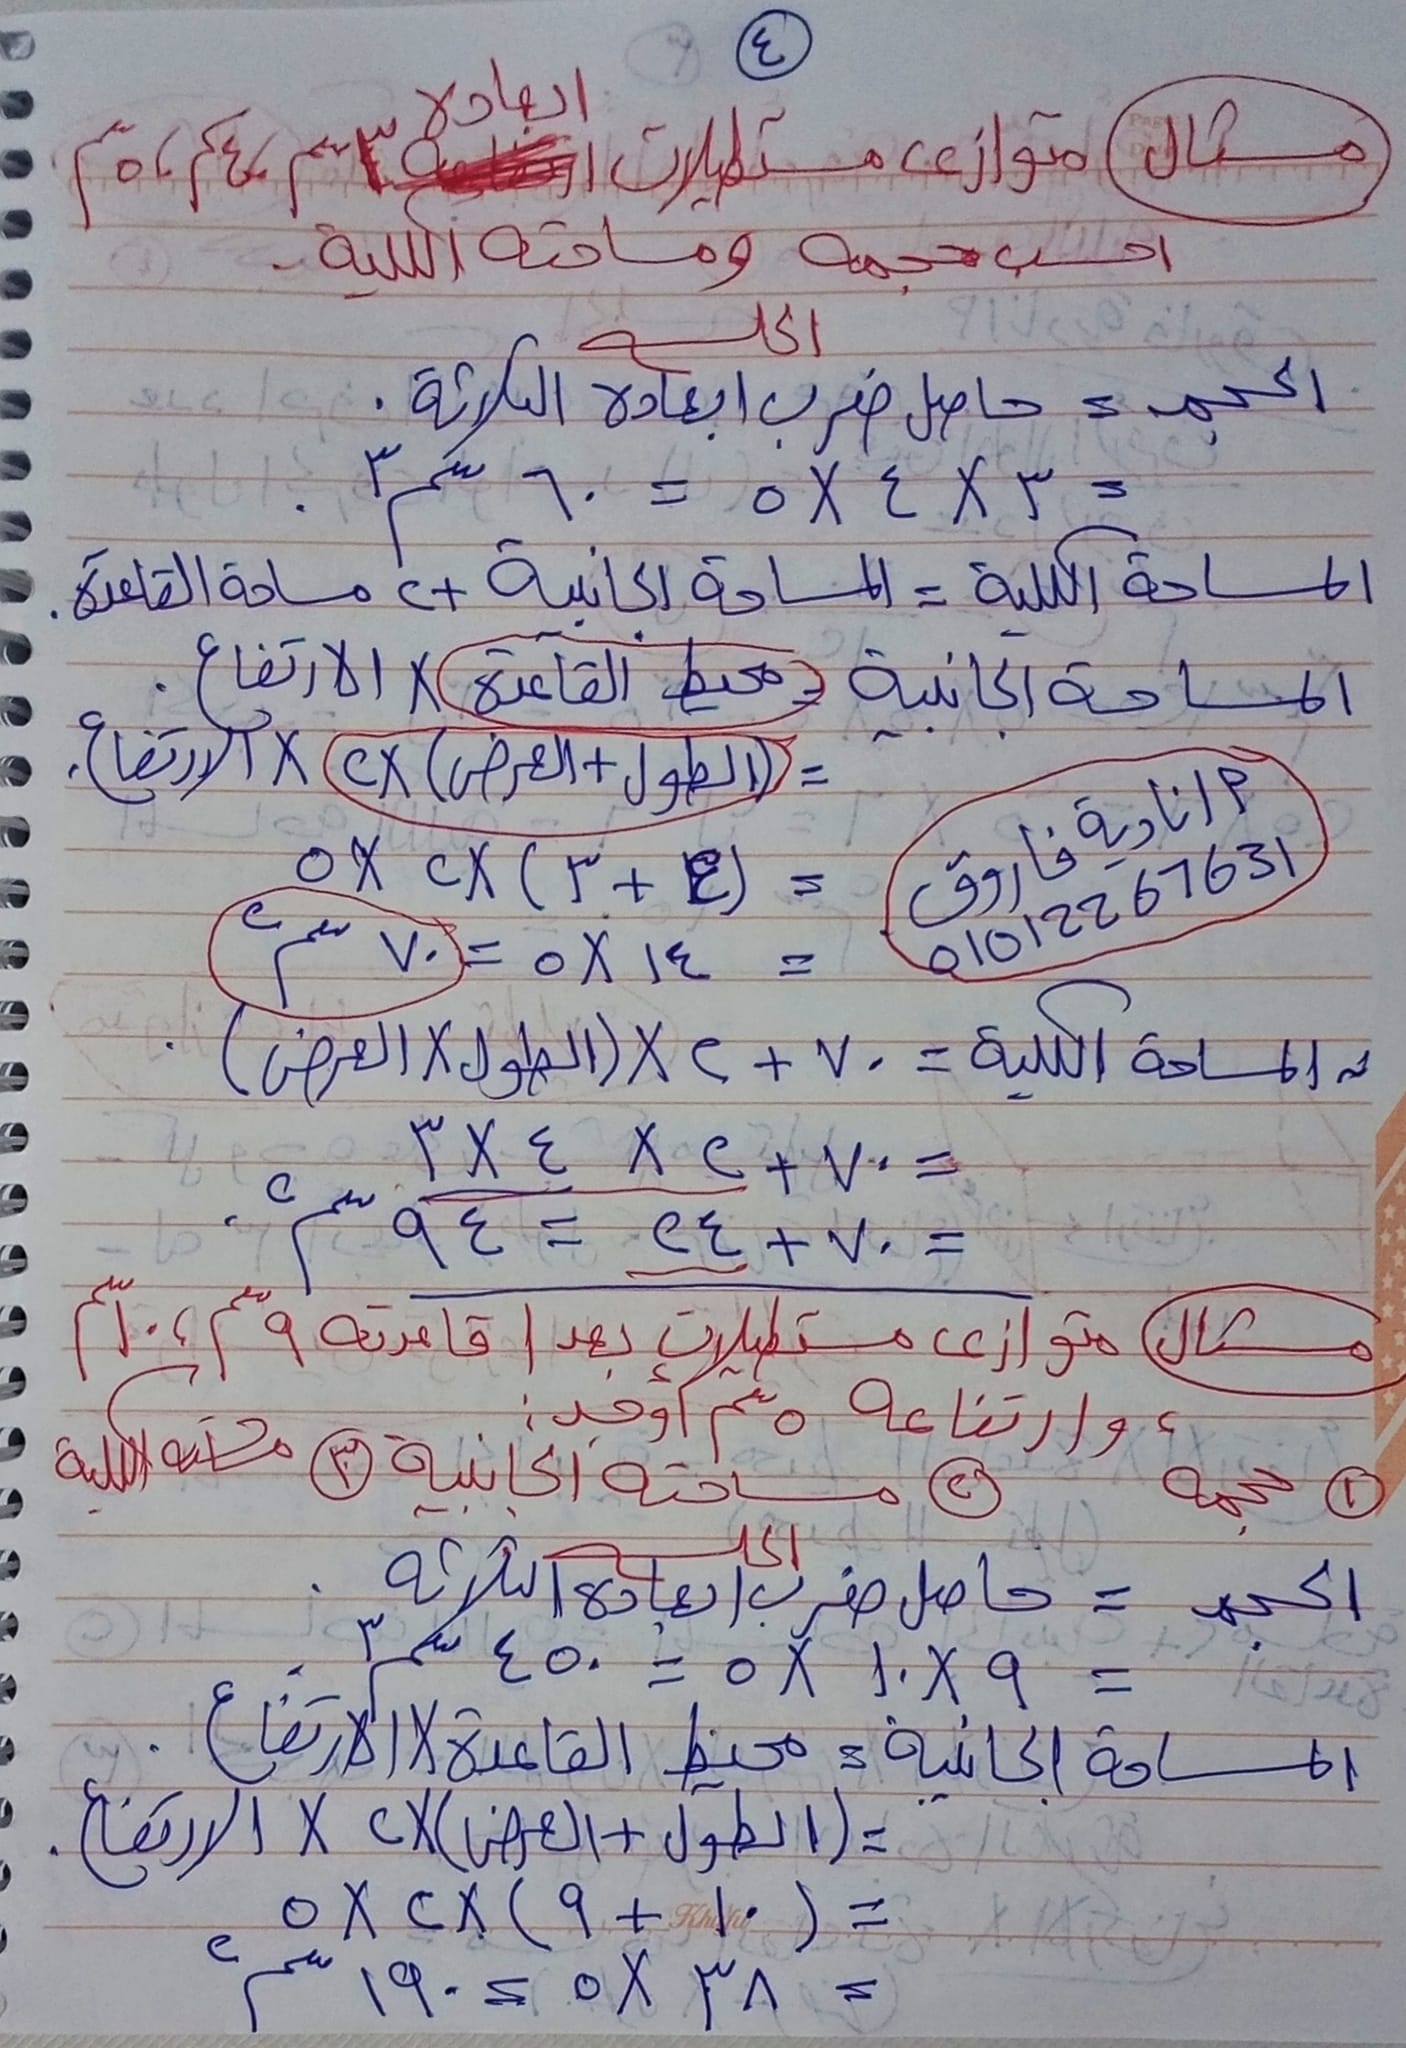 ٤
ابعاده
مثال متوازى مستطيلات ٣سم، ٤سم، ٥سم
احسب حجمه ومساحته الكلية.
الحل
الحجم = حاصل ضرب ابعاده الثلاثة.
= ٣ X ٤ X ٥ = ٦٠ سم٣.
المساحة الكلية = المساحة الجانبية + ٢ مساحة القاعدة.
المساحة الجانبية = محيط القاعدة X الارتفاع.
= (الطول + العرض) X ٢ X الارتفاع.
= (٤ + ٣) X ٢ X ٥
= ١٤ X ٥ = ٧٠ سم٢
أ/ نادية فاروق
01012267631
∴ المساحة الكلية = ٧٠ + ٢ X (الطول X العرض).
= ٧٠ + ٢ X ٤ X ٣
= ٧٠ + ٢٤ = ٩٤ سم٢.
مثال متوازى مستطيلات بعدا قاعدته ٩سم، ١٠سم
، وارتفاعه ٥سم أوجد:
١ حجمه ٢ مساحته الجانبية ٣ مساحته الكلية
الحل
الحجم = حاصل ضرب ابعاده الثلاثة.
= ٩ X ١٠ X ٥ = ٤٥٠ سم٣.
المساحة الجانبية = محيط القاعدة X الارتفاع.
= (الطول + العرض) X ٢ X الارتفاع.
= (١٠ + ٩) X ٢ X ٥
= ٣٨ X ٥ = ١٩٠ سم٢